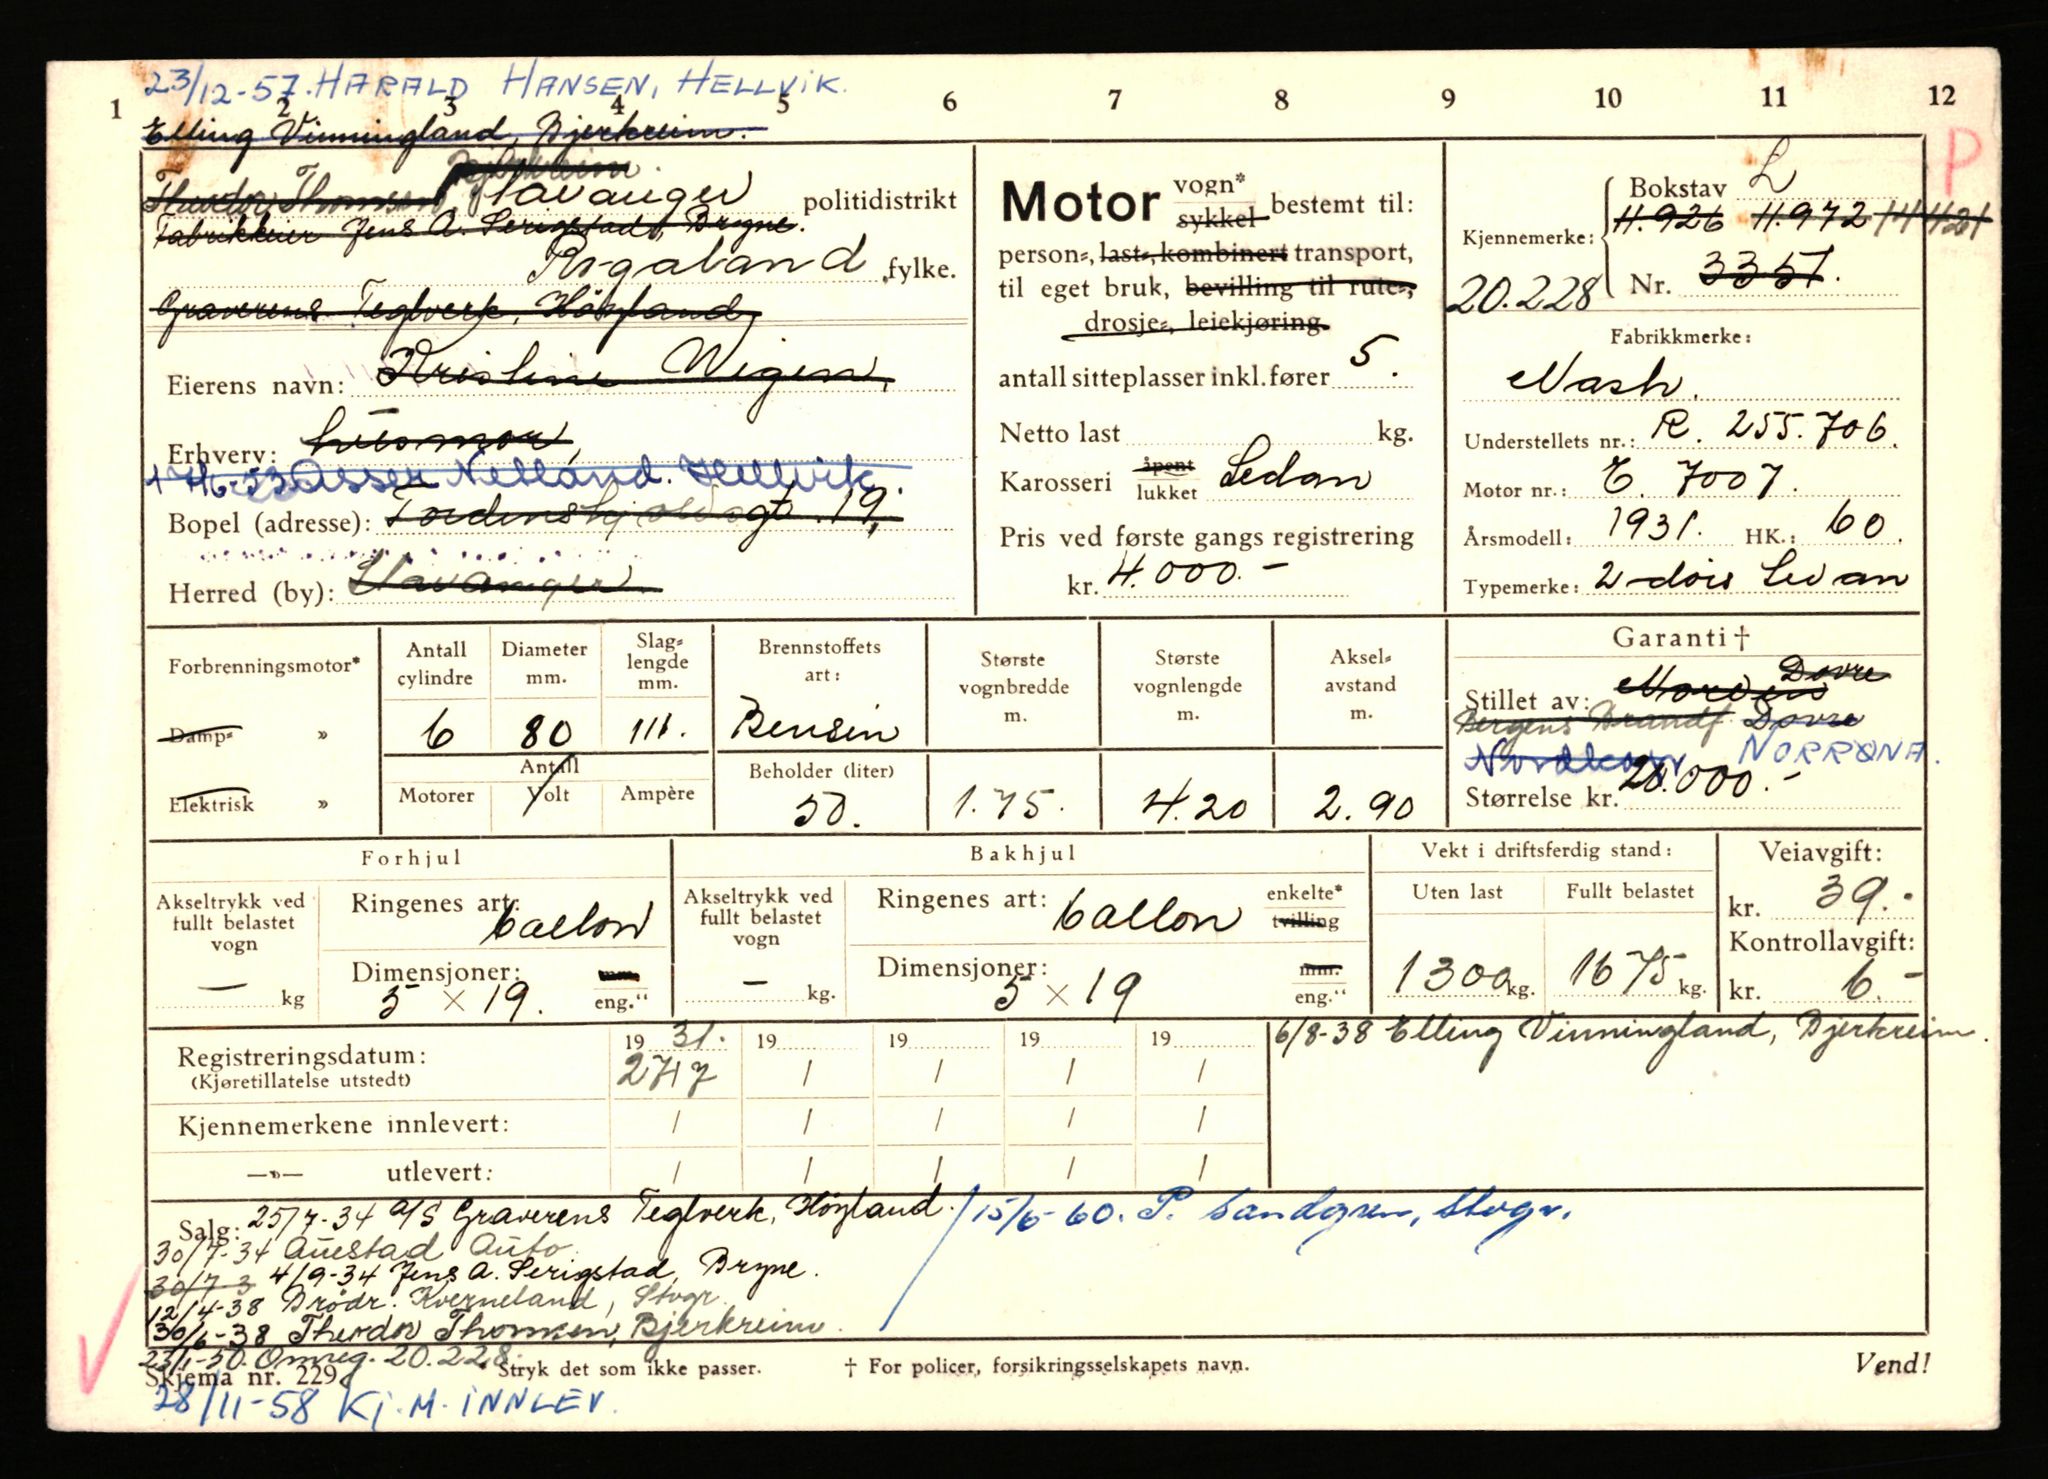 23/12-57. HARALD HANSEN, HELLVIK.
1 2 3 4 5 6 7 8 9 10 11 12
Elling Vinningland, Bjerkreim.
P
Bjerkreim
Theodor Thomsen Stavanger politidistrikt
Fabrikkeier Jens A. Serigstad, Bryne.
Rogaland fylke.
Graverens Teglverk, Höyland
Eierens navn: Kristine Wigen,
Erhverv: husmor,
Asser Nesland. Hellvik.
Bopel (adresse): Tordenskjoldsgt. 19,
Herred (by): Stavanger
Motor vogn* sykkel bestemt til:
person-, last-, kombinert transport,
til eget bruk, bevilling til rute-,
drosje-, leiekjøring.
antall sitteplasser inkl. fører 5.
Netto last kg.
Karosseri åpent lukket Sedan
Pris ved første gangs registrering
kr. 4.000.-
Bokstav L
Kjennemerke: 11.926 11.972 14421
20.228 Nr. 3357.
Fabrikkmerke:
Nash.
Understellets nr.: R. 255.706.
Motor nr.: E. 7007.
Årsmodell: 1931. HK.: 60.
Typemerke: 2-dörs Sedan
Forbrenningsmotor*
Damp- »
Elektrisk »
Antall cylindre 6
Diameter mm. 80
Slaglengde mm. 111.
Antall
Motorer Volt Ampère
Brennstoffets art: Bensin
Beholder (liter) 50.
Største vognbredde m. 1.75.
Største vognlengde m. 4.20
Akselavstand m. 2.90
Garanti †
Dovre
Stillet av: Norden
Bergens Brandf. Dovre
NORRØNA.
Størrelse kr. 20.000.-
Forhjul
Akseltrykk ved fullt belastet vogn — kg
Ringenes art: ballon
Dimensjoner: 5 x 19. mm. eng."
Bakhjul
Akseltrykk ved fullt belastet vogn — kg.
Ringenes art: ballon enkelte* tvilling
Dimensjoner: 5 x 19 mm. eng."
Vekt i driftsferdig stand:
Uten last Fullt belastet
1300 kg. 1675 kg.
Veiavgift:
kr. 39.-
Kontrollavgift:
kr. 6.-
Registreringsdatum: 1931. 19 19 19 19
(Kjøretillatelse utstedt) 27/7 / / / /
Kjennemerkene innlevert: / / / / /
—»— utlevert: / / / / /
6/8-38 Elling Vinningland, Bjerkreim.
Salg: 25/7-34 A/S Graverens Teglverk, Höyland. 15/6-60. P. Sandgren, Stvgr.
30/7-34 Auestad Auto
30/7-3 4/9-34 Jens A. Serigstad, Bryne.
12/4-38 Brødr. Kverneland, Stvgr.
30/6-38 Theodor Thomsen, Bjerkreim.
23/1-50. Omreg. 20.228.
Skjema nr. 229 * Stryk det som ikke passer. † For policer, forsikringsselskapets navn. Vend!
28/11-58 Kj. M. INNLEV.